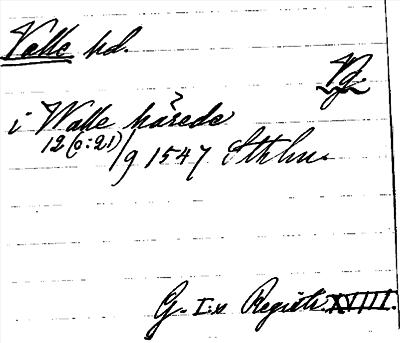 Valle hd.
Vg.
i Walle härede
12 (o: 21)/9 1547 Sthlm
G. I:s Registr. XVIII.